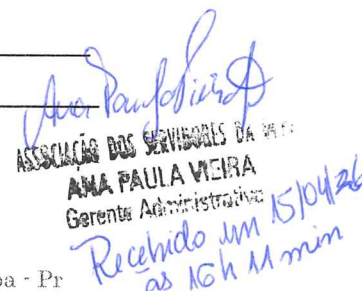 Ana Paula Vieira
ASSOCIAÇÃO DOS SERVIDORES DA
ANA PAULA VIEIRA
Gerente Administrativa
Recebido em 15/04/26
às 16h 11 min
ba - Pr